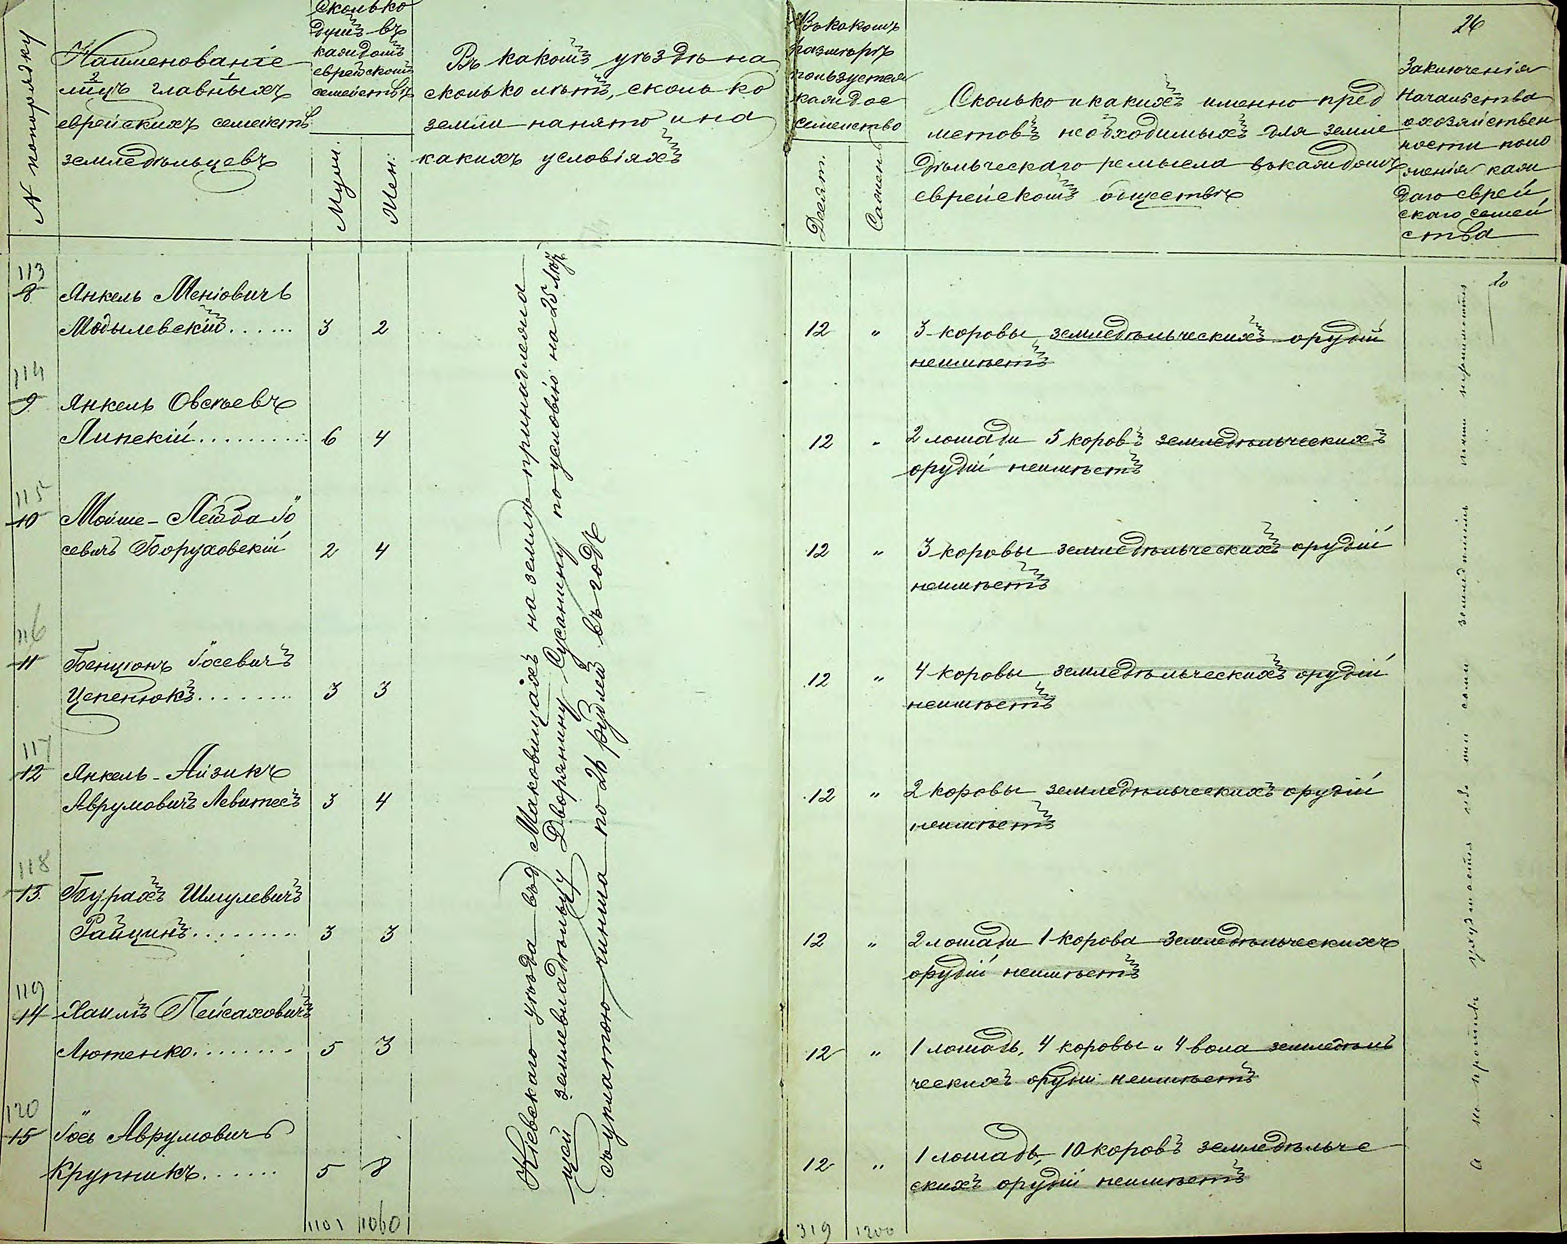 26
N попорядку
Наименованіе
лицъ главныхъ
еврейскихъ семействъ
земледѣльцевъ
Сколько
душъ въ
каждомъ
еврейскомъ
семействѣ
Муж.
Жен.
Въ какомъ уѣздѣ на
сколько лѣтъ, сколько
земли нанято и на
какихъ условіяхъ
Въ какомъ
размѣрѣ
пользуется
каждое
семейство
Десят.
Сажень
Сколько и какихъ именно пред
метовъ необходимыхъ для земле
дѣльческаго ремысла въ каждомъ
еврейскомъ обществѣ
Заключенія
Начальства
о хозяйствен
ности поло
женія каж
даго еврей
скаго семей
ства
113
8 Янкель Меніовичъ
Модылевскій...... 3 2 12 " 3 коровы земледѣльческихъ орудій
неимѣетъ
114
9 Янкель Овсѣевъ
Липскій.......... 6 4 12 " 2 лошади 5 коровъ земледѣльческихъ
орудій неимѣетъ
115
10 Мойше-Лейба Іо
севичъ Боруховскій 2 4 12 " 3 коровы земледѣльческихъ орудій
неимѣетъ
116
11 Бенціонъ Іосевичъ
Цепенюкъ........ 3 3 12 " 4 коровы земледѣльческихъ орудій
неимѣетъ
117
12 Янкель-Айзикъ
Аврумовичъ Левитесъ 3 4 12 " 2 коровы земледѣльческихъ орудій
неимѣетъ
118
13 Бурахъ Шмулевичъ
Райцинъ........ 3 3 12 " 2 лошади 1 корова земледѣльческихъ
орудій неимѣетъ
119
14 Хаимъ Пейсаховичъ
Лютенко........ 5 3 12 " 1 лошадь, 4 коровы и 4 вола земледѣль
ческихъ орудій неимѣетъ
120
15 Іось Аврумовичъ
Крупникъ...... 5 8 12 " 1 лошадь 10 коровъ земледѣльче
скихъ орудій неимѣетъ
1101 1060 319 1200
Кіевскаго уѣзда въ Маковищахъ на землѣ принадлежа
щей землевладѣльцу Дворянину Сусанину по условію на 25 лѣтъ
съ уплатою чинша по 26 рублей въ годъ